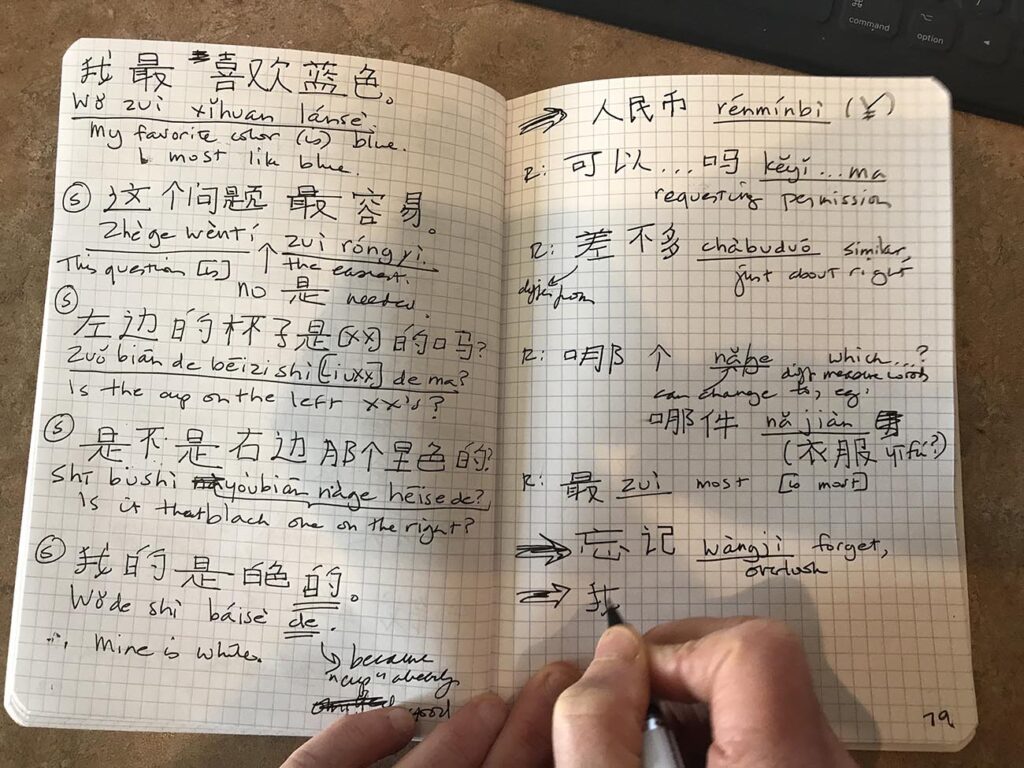 我最喜欢蓝色。
Wǒ zuì xǐhuan lánsè.
My favorite color (is) blue.
I most like blue.
⑤ 这个问题最容易。
Zhège wèntí ↑ zuì róngyì.
This question [is] the easiest.
no 是 needed.
⑤
左边的杯子是[XX]的吗?
Zuǒbiān de bēizi shì [... xx] de ma?
Is the cup on the left XX's?
⑤
是不是右边那个黑色的?
Shì bùshì yòubiān nàge hēisè de?
Is it that black one on the right?
⑤ 我的是白色的。
Wǒde shì báisè de.
∴ Mine is white.
→ because
"cup" already
⇒ 人民币 rénmínbì (¥)
R: 可以...吗 kěyǐ...ma
requesting permission
R: 差不多 chàbuduō similar,
just about right
differ from
R: 哪个 nǎge which...?
diff measure words
can change to, eg:
哪件 nǎ jiàn
(衣服 yīfú?)
R: 最 zuì most
⇒ 忘记 wàngjì forget,
overlook
⇒ 我
79
command
option